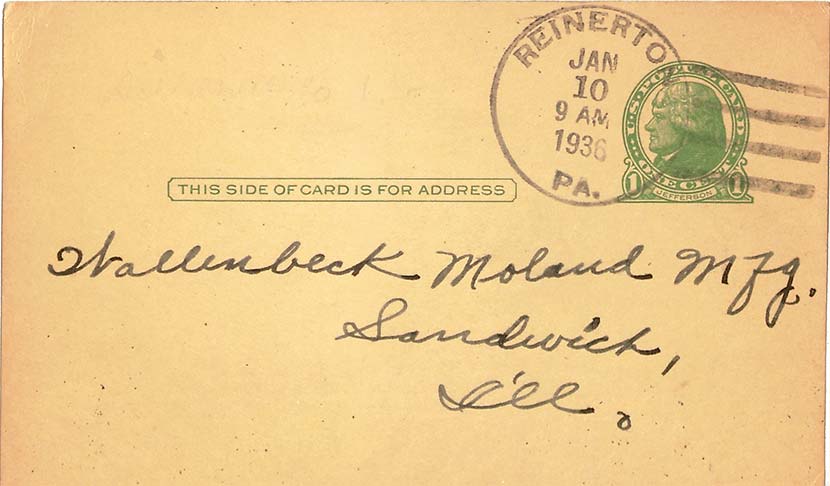 REINERTO
JAN
10
9 AM
1936
PA.
U.S. POSTAL CARD
ONE CENT
1 JEFFERSON 1
THIS SIDE OF CARD IS FOR ADDRESS
Wallenbeck Moland Mfg.
Sandwich,
Ill.